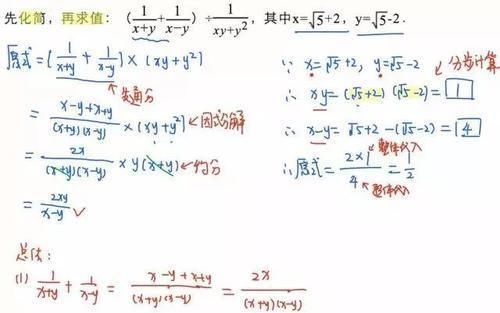 先化简，再求值：（1/(x+y)+1/(x-y)）÷1/(xy+y²)，其中x=√5+2，y=√5-2．
原式=(1/(x+y) + 1/(x-y)) × (xy+y²)
先通分
= (x-y+x+y)/((x+y)(x-y)) × (xy+y²) ←因式分解
= 2x/((x+y)(x-y)) × y(x+y) ←约分
= 2xy/(x-y) ✓
∵ x=√5+2, y=√5-2 分步计算
∴ xy=(√5+2)(√5-2)=1
∴ x-y=√5+2-(√5-2)=4
∴原式= (2×1)/4 = 1/2
整体代入
整体代入
总结：
(1) 1/(x+y) + 1/(x-y) = (x-y+x+y)/((x+y)(x-y)) = 2x/((x+y)(x-y))